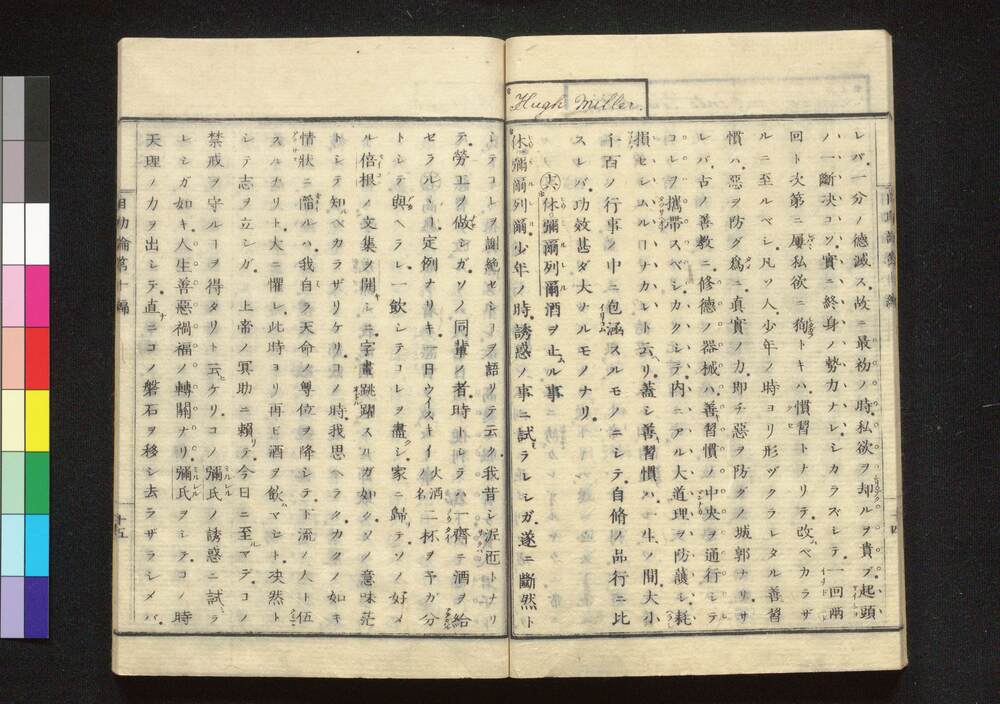 レバ一分ノ德減ス故ニ最初ノ時私欲ヲ却ルヲ貴ブ起頭
ノ一斷決コソ實ニ終身ノ勢力ナレシカラズシテ一回兩
回ト次第ニ屢私欲ニ狥トキハ慣習トナリテ改ベカラザ
ルニ至ルベシ凡ソ人少年ノ時ヨリ形ヅクラレタル善習
慣ハ惡ヲ防グ爲ニ眞實ノ力即チ惡ヲ防グノ城郭ナリサ
レバ古ノ善教ニ修德ノ器械ハ善習慣ノ中央ヲ通行シテ
コレヲ攜帶スベシカクシテ内ニアル大道理ヲ防護シ耗
損セシムルヿナカレト云リ蓋シ善習慣ハ一生ノ間大小
千百ノ行事ノ中ニ包涵スルモノニシテ自脩ノ品行ニ比
スレバ功效甚ダ大ナルモノナリ
Hugh Miller.
十六 休彌爾列爾酒ヲ止ムル事
休彌爾列爾少年ノ時誘惑ノ事ニ試ラレシガ遂ニ斷然ト
シテコレヲ謝絶セシヿヲ語リテ云ク我昔シ泥匠トナリ
テ勞工ノ做シガソノ同輩ノ者時トシテハ一齊ニ酒ヲ給
セラルヽヿ定例ナリキ一日ウイスキイ火酒ノ名二杯ヲ予ガ分
トシテ與ヘラレ一飲シテコレヲ盡クシ家ニ歸リテソノ好メ
ル倍根ノ文集ヲ開キシニ字畫跳躍スルガ如クソノ意味茫
トシテ知ルベカラザリケリコノ時我思ヘラクカクノ如キ
情狀ニ陷ルハ我自ラ天命ノ尊位ヲ降シテ下流ノ人ト伍
スルナリト大ニ懼レ此時ヨリ再ビ酒ヲ飲マジト决然ト
シテ志ヲ立シガ 上帝ノ冥助ニ賴リテ今日ニ至ルマデコノ
禁戒ヲ守ルヿヲ得タリト云ケリコノ彌氏ノ誘惑ニ試ラ
レシガ如キ人生善惡禍福ノ轉關ナリ彌氏ヲシテコノ時
天理ノ力ヲ出シテ直ニコノ磐石ヲ移シ去ラザラシメバ
自助論第十編
十五